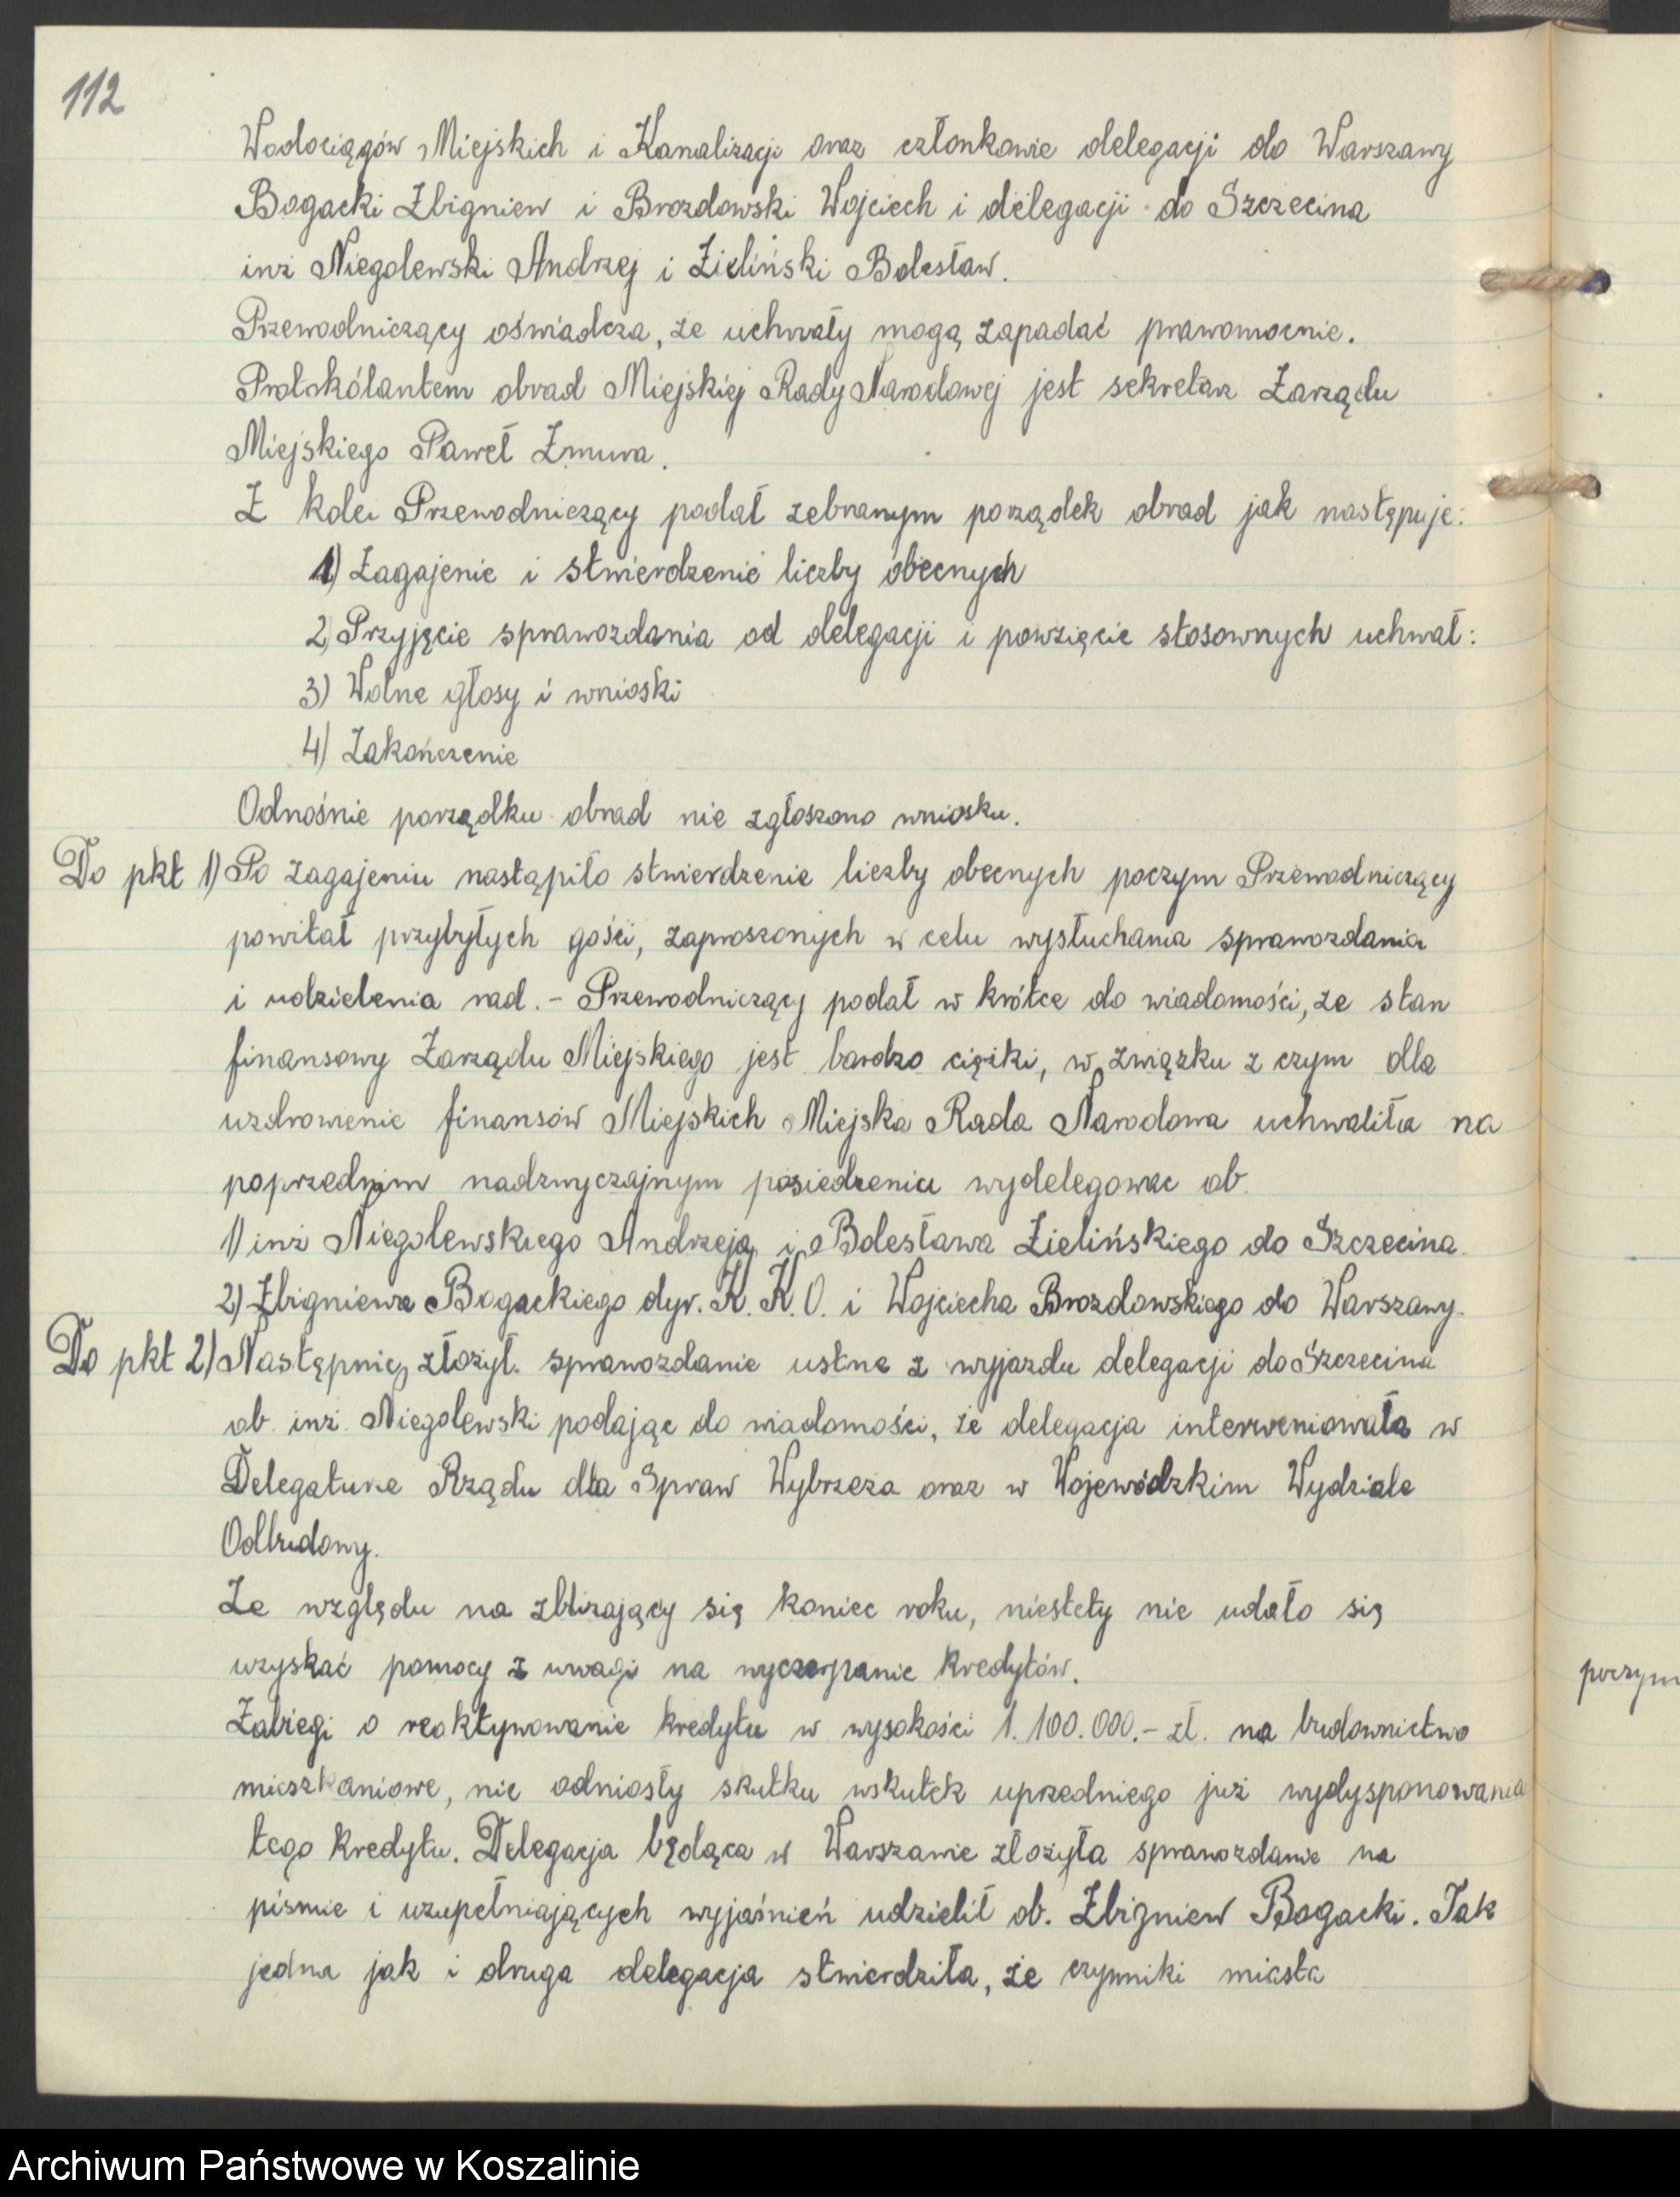 112
Wodociągów Miejskich i Kanalizacji oraz członkowie delegacji do Warszawy
Bogacki Zbigniew i Brozdowski Wojciech i delegacji do Szczecina
inż Niegolewski Andrzej i Zieliński Bolesław.
Przewodniczący oświadcza, że uchwały mogą zapadać prawomocnie.
Protokólantem obrad Miejskiej Rady Narodowej jest sekretarz Zarządu
Miejskiego Paweł Żmura.
Z kolei Przewodniczący podał zebranym porządek obrad jak następuje:
1) Zagajenie i stwierdzenie liczby obecnych
2) Przyjęcie sprawozdania od delegacji i powzięcie stosownych uchwał:
3) Wolne głosy i wnioski
4) Zakończenie
Odnośnie porządku obrad nie zgłoszono wniosku.
Do pkt 1) Po zagajeniu nastąpiło stwierdzenie liczby obecnych poczym Przewodniczący
powitał przybyłych gości, zaproszonych w celu wysłuchania sprawozdania
i udzielenia rad. - Przewodniczący podał w krótce do wiadomości, że stan
finansowy Zarządu Miejskiego jest bardzo ciężki, w związku z czym dla
uzdrowienie finansów Miejskich Miejska Rada Narodowa uchwaliła na
poprzednim nadzwyczajnym posiedzeniu wydelegować ob.
1) inż Niegolewskiego Andrzeja i Bolesława Zielińskiego do Szczecina
2) Zbigniewa Bogackiego dyr. K. K. O. i Wojciecha Brozdowskiego do Warszawy.
Do pkt 2) Następnie złożył sprawozdanie ustne z wyjazdu delegacji do Szczecina
ob. inż. Niegolewski podając do wiadomości, że delegacja interweniowała w
Delegaturze Rządu dla Spraw Wybrzeża oraz w Wojewódzkim Wydziale
Odbudowy.
Ze względu na zbliżający się koniec roku, niestety nie udało się
uzyskać pomocy z uwagi na wyczerpanie kredytów.
Zabiegi o reaktywowanie kredytu w wysokości 1.100.000.- zł. na budownictwo
mieszkaniowe, nie odniosły skutku wskutek uprzedniego już wydysponowania
tego kredytu. Delegacja będąca w Warszawie złożyła sprawozdanie na
piśmie i uzupełniających wyjaśnień udzielił ob. Zbigniew Bogacki. Tak
jedna jak i druga delegacja stwierdziła, że czynniki miasta
poczym
Archiwum Państwowe w Koszalinie